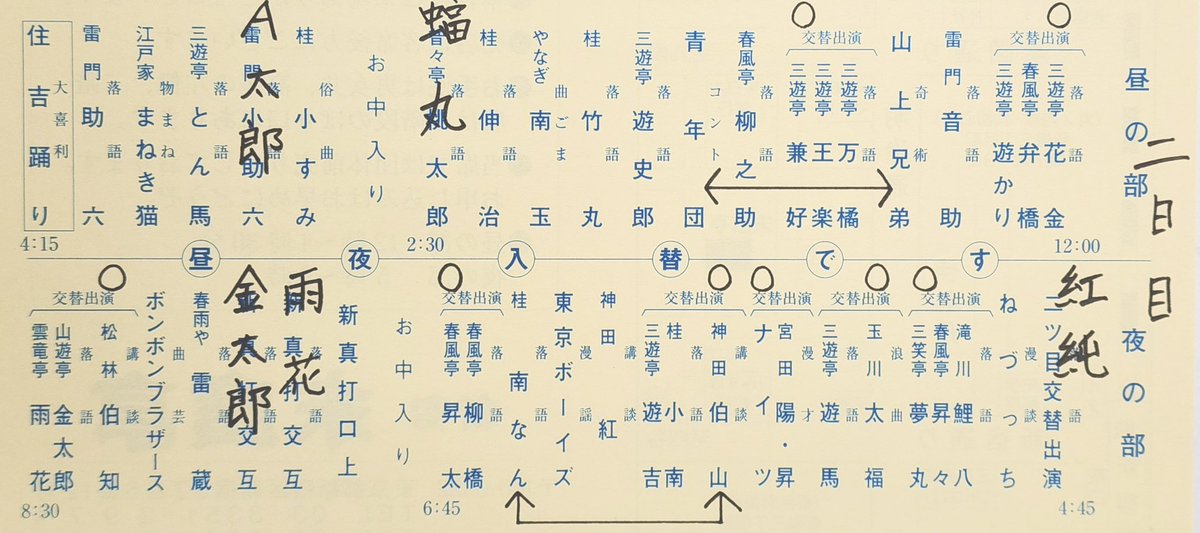 二日目
昼の部
12:00
交替出演
落語
三遊亭 花金
春風亭 弁橋
三遊亭 遊かり
落語
雷門 音助
奇術
山上兄弟
交替出演
落語
三遊亭 万橘
三遊亭 王楽
三遊亭 兼好
落語
春風亭 柳之助
コント
青年団
落語
三遊亭 遊史郎
落語
桂 竹丸
曲ごま
やなぎ 南玉
落語
桂 伸治
落語
昔々亭 桃太郎
蝠丸
2:30
お中入り
俗曲
桂 小すみ
落語
雷門 小助六
A太郎
落語
三遊亭 とん馬
物まね
江戸家 まねき猫
落語
雷門 助六
大喜利
住吉踊り
4:15
昼夜入替です
夜の部
4:45
二ツ目交替出演
紅純
漫談
ねづっち
交替出演
落語
滝川 鯉八
春風亭 昇々
三笑亭 夢丸
交替出演
浪曲
玉川 太福
落語
三遊亭 遊馬
交替出演
漫才
宮田 陽・昇
ナイツ
交替出演
講談
神田 伯山
落語
桂 小南
三遊亭 遊吉
講談
神田 紅
漫謡
東京ボーイズ
落語
桂 南なん
交替出演
落語
春風亭 柳橋
春風亭 昇太
6:45
お中入り
新真打口上
落語
新真打交互
雨花
落語
新真打交互
金太郎
落語
春雨や 雷蔵
曲芸
ボンボンブラザース
交替出演
講談
松林 伯知
落語
山遊亭 金太郎
雲竜亭 雨花
8:30